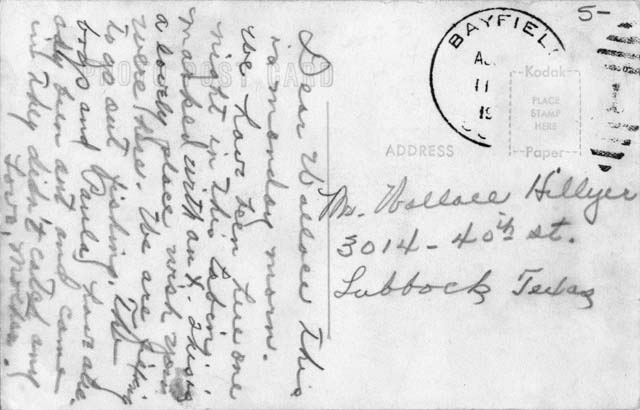 PHOTO POST CARD
Dear Wallace This
is monday morn.
We have been here one
night in this cabin,
marked with an X. This is
a lovely place wish you
were here. We are fixing
to go out fishing. The
boys and Paula have alre
ady been out and came
in They didn't catch any
Love, Mother.
5-
BAYFIEL
11
19
Kodak
PLACE
STAMP
HERE
Paper
ADDRESS
Mr. Wallace Hillyer
3014-40th st.
Lubbock, Texas